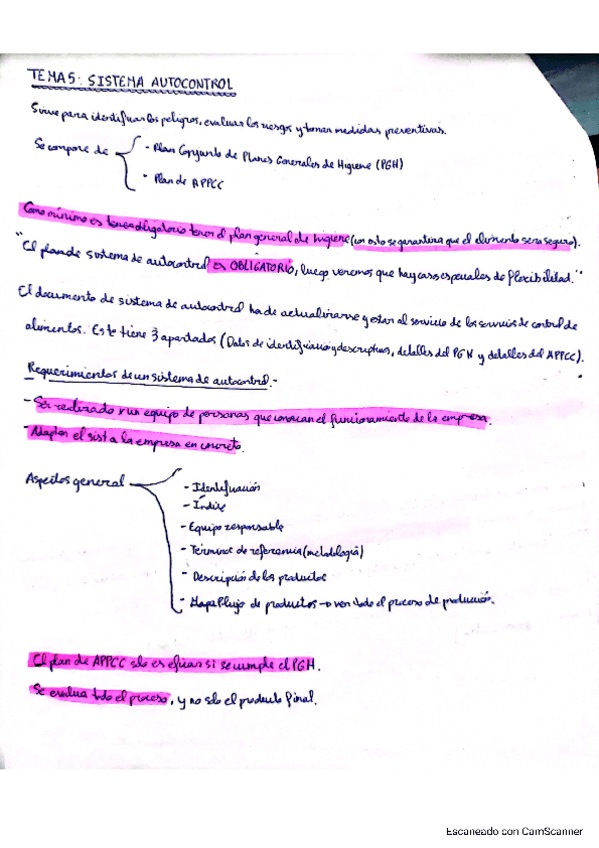 TEMA 5: SISTEMA AUTOCONTROL
Sirve para identificar los peligros, evaluar los riesgos y tomar medidas preventivas.
Se compone de
- Plan Conjunto de Planes Generales de Higiene (PGH)
- Plan de APPCC
Como mínimo es obligatorio tener el plan general de higiene (con esto se garantiza que el alimento sera seguro).
"El plan de sistema de autocontrol es OBLIGATORIO, luego veremos que hay casos especiales de flexibilidad."
El documento de sistema de autocontrol ha de actualizarse y estar al servicio de los servicios de control de
alimentos. Este tiene 3 apartados (Datos de identificación y descriptivos, detalles del PGH y detalles del APPCC).
Requerimientos de un sistema de autocontrol.-
- Ser realizado x un equipo de personas que conozcan el funcionamiento de la empresa.
- Adaptar el sist a la empresa en concreto.
Aspectos general
- Identificación
- Índice
- Equipo responsable
- Términos de referencia (metodología)
- Descripción de los productos
- Mapa Flujo de productos → ven todo el proceso de producción.
El plan de APPCC solo es eficaz si se cumple el PGH.
Se evalua todo el proceso, y no solo el producto final.
Escaneado con CamScanner